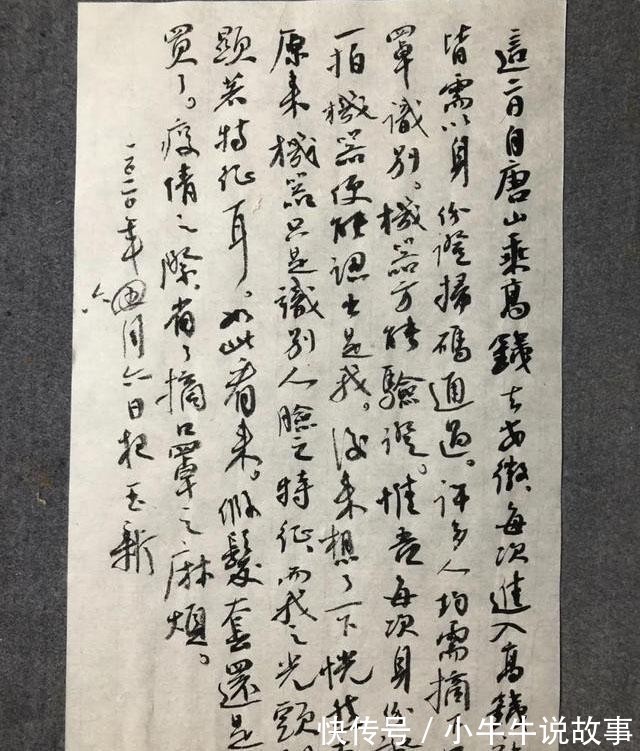 這二日自唐山乘高鐵去安徽，每次進入高鐵
皆需以身份證掃碼通過。許多人均需摘
罩識別。機器方能驗證。惟吾每次身份
一拍機器便能認出是我。後來想了一下恍
原来機器只是識別人臉之特征，而我之光頭
顯著特征耳。如此看来。假髮套還是
買了。疫情之際省了摘口罩之麻煩。
二〇二〇年四月六日 玉新
六
快传号／小牛牛说故事